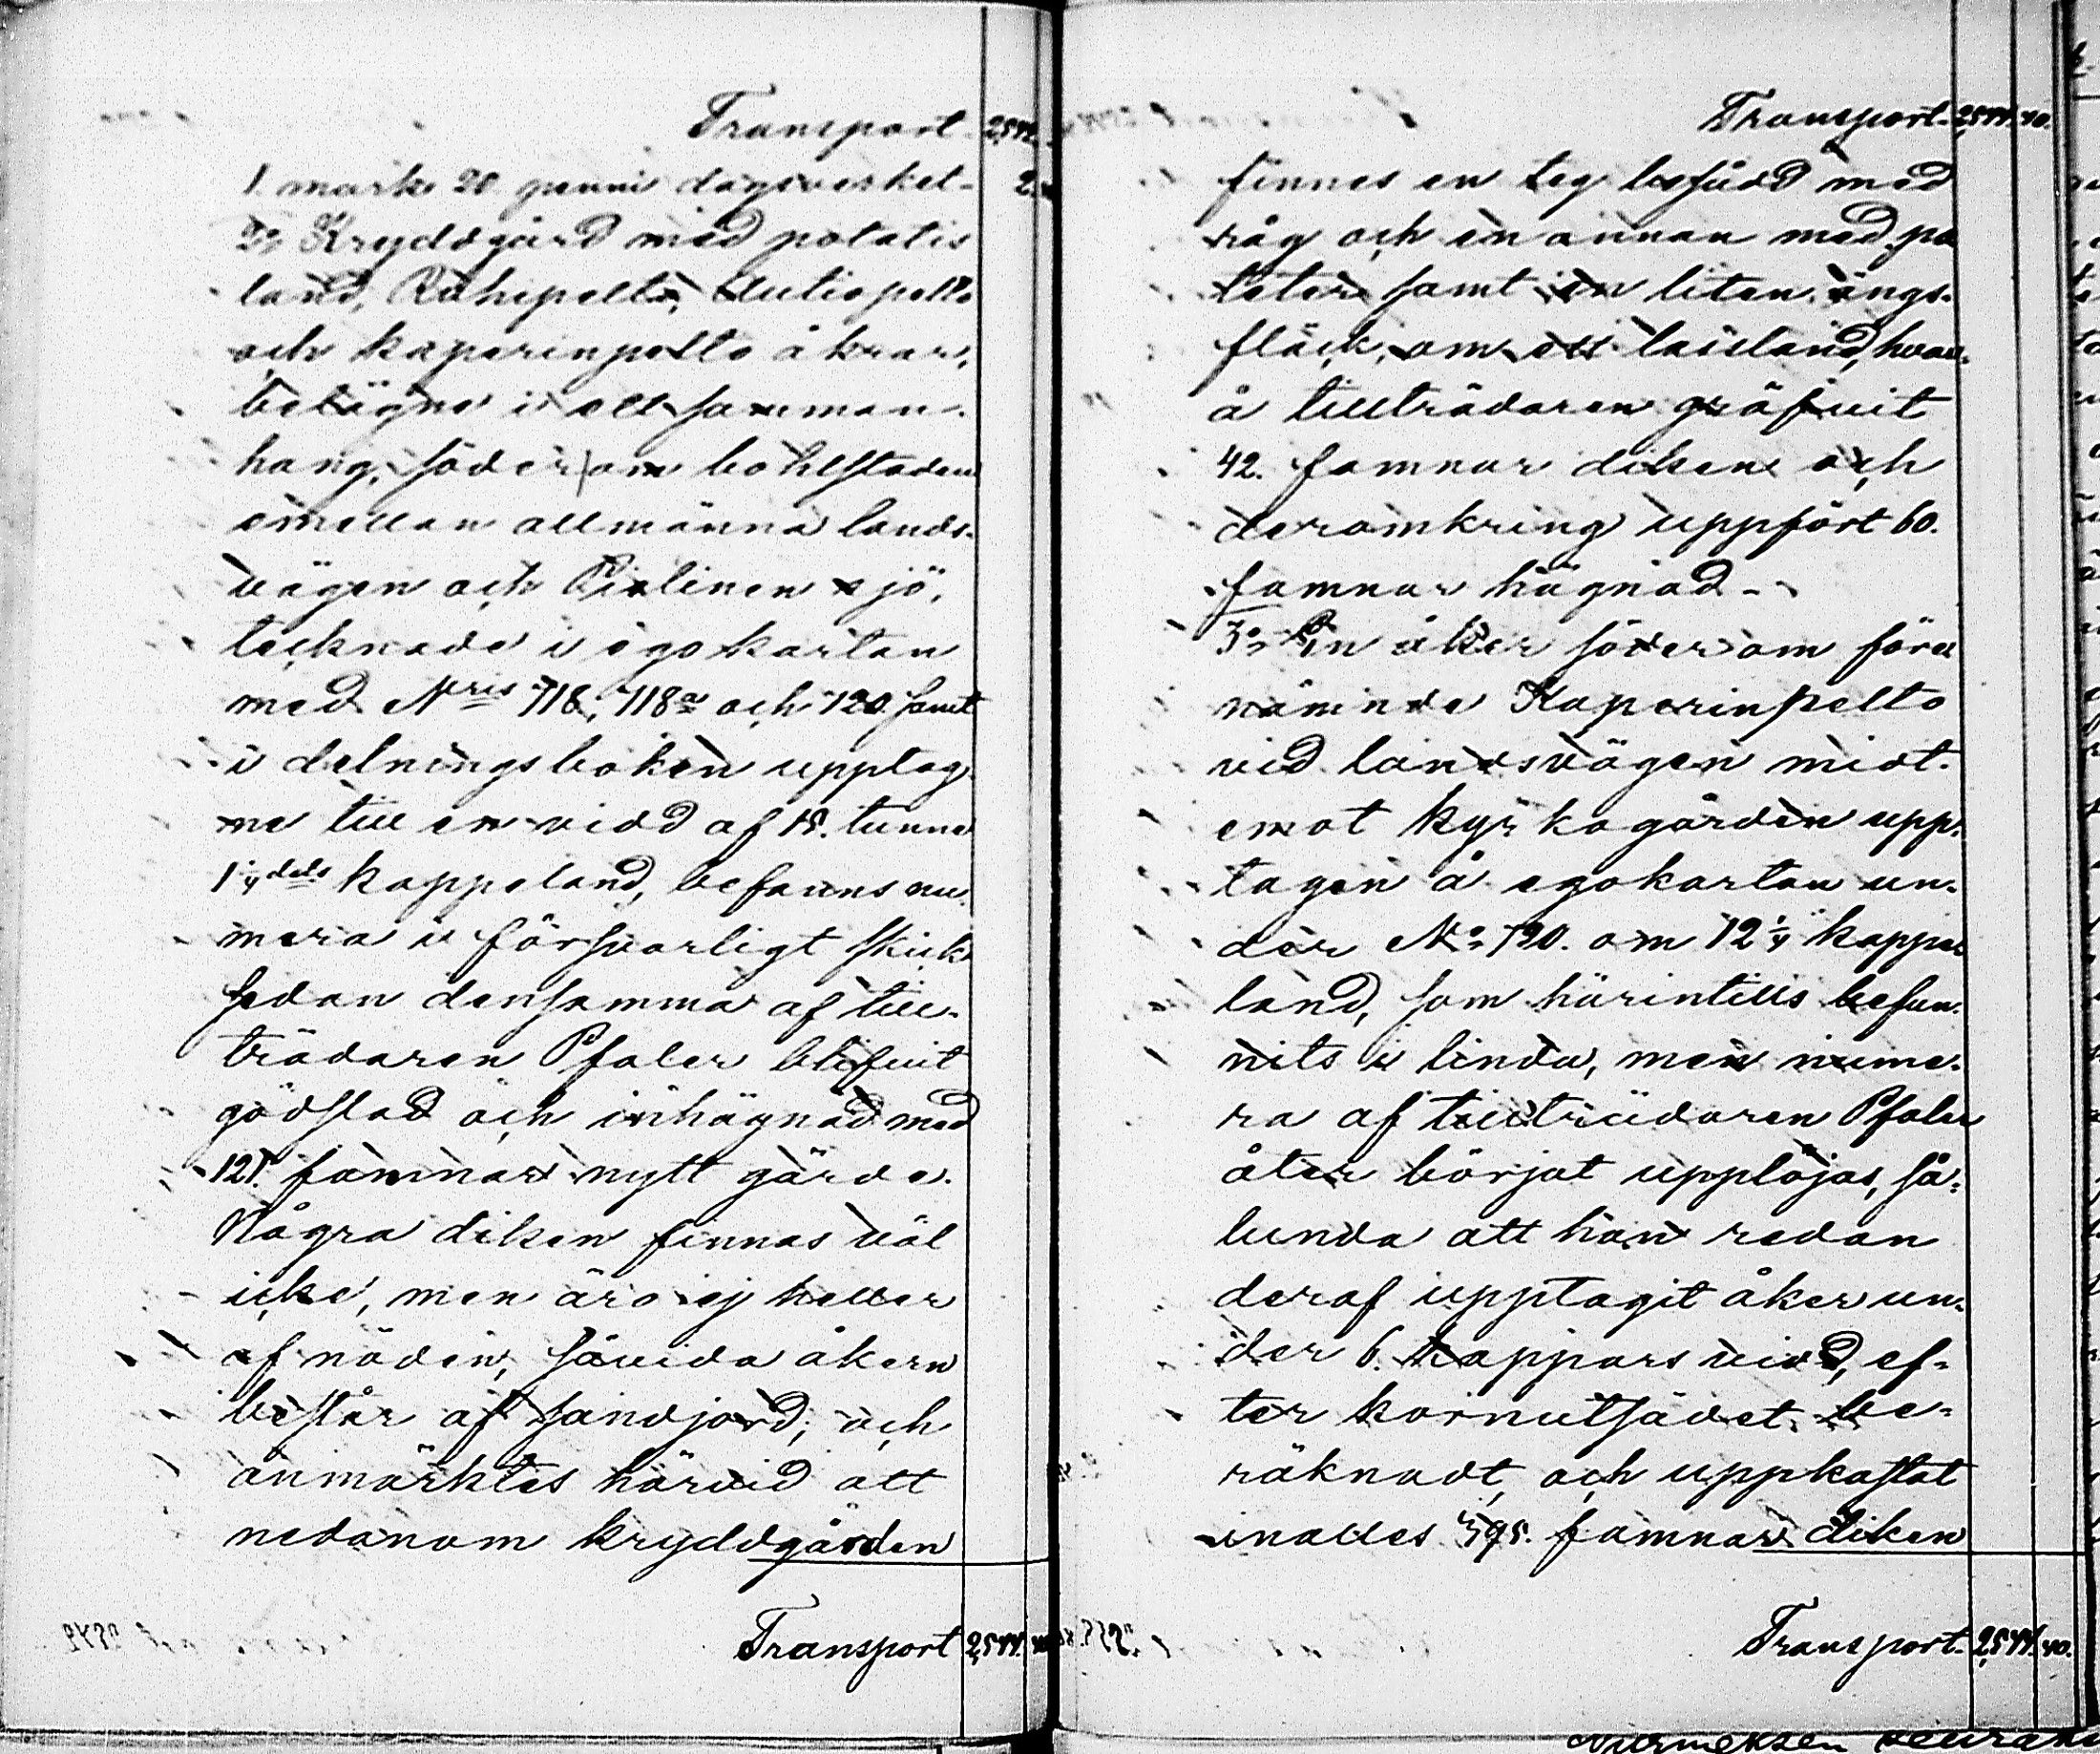 Transport 2,542.
1. mark 20 penni dagsverket - 2.
2:o Kryddgård med potatis
land, Riihipelto, Autiopelto
och kaperinpelto åkrar,
belägne i ett samman-
hang, söder om bohlstaden
emellan allmänna lands-
vägen och Pielinen sjö,
tecknade i egokartan
med N:ris 118, 118a och 120. samt
i delningsboken upptag
ne till en vidd af 15. tunne
1 1/4 dels kappeland, befanns nu-
mera i försvarligt skick
sedan densamma af till-
trädaren Pfaler blifvit
gödslad och inhägnad med
121. famnar nytt gärde.
Några diken finnas väl
icke, men äro ej heller
af nöden, såvida åkern
består af sandjord; och
anmärktes härvid att
nedanom kryddgården
Transport 2,544. 40
Transport. 2,544. 40.
finnes en teg besådd med
råg och en annan med po
teter samt en liten ängs-
fläck, om ett land, hvar-
å tillträdaren gräfvit
42. famnar diken och
deromkring uppfört 60.
famnar hägnad -
3:o En åker söder om före
nämnde Kaperinpelto
vid landsvägen midt-
emot kyrkogården upp-
tagen å egokartan un-
der N:o 120. om 12 1/4 kappe
land, som härintills befun-
nits i linda, men nume-
ra af tillträdaren Pfaler
åter börjat upplöjas, så-
lunda att han redan
deraf upptagit åker un-
der 6. kappars vidd, ef-
ter kornutsädet be-
räknadt, och uppkastat
inalles 595. famnar diken
Transport. 2,544. 40.